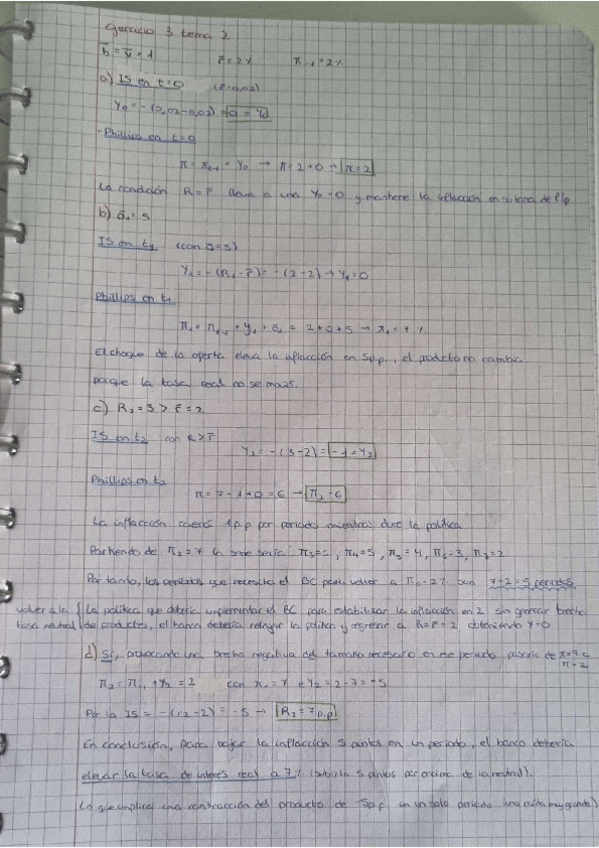 Ejercicio 3 tema 2
b̄ = v̄ = 1 r̄ = 2% π₋₁ = 2%
a) IS en t=0 (r̄=0,02)
Y₀ = -(0,02-0,02) = 0 = Y₀
- Phillips en t=0
π = πₜ₋₁ + Y₀ → π = 2+0 → π=2
La condición R = r̄ lleva a una Y₀=0 y mantiene la inflacción en su tasa de
b) ō₁ = 5
IS en t₁ (con ō=5)
Y₁ = -(R₁-r̄) = -(2-2) → Y₁=0
Phillips en t₁
π₁ = πₜ₋₁ + Y₁ + ō₁ = 2+0+5 → π₁ = 7%
El choque de la oferta eleva la inflacción en 5p.p, el producto no cambia
porque la tasa real no se
c) R₂ = 3 > r̄ = 2
IS en t₂ con R>r̄
Y₂ = -(3-2) = -1 = Y₂
Phillips en t₂
π = 7-1+0 = 6 → π₂ = 6
La inflacción caerá 1p.p por periodo mientras dure la política
Partiendo de π₂=7 la serie sería: π₃=6, π₄=5, π₅=4, π₆=3, π₇=2
Por tanto, los periodos que necesita el BC para volver a π₀=2% son 7-2=5 periodos
volver a la { La política que debería implementar el BC para estabilizar la inflacción en 2 sin generar brecha
tasa neutral { de productos, el banco debería relajar la política y regresar a R=r̄=2 obteniendo Y=0
d) Sí, provocando una brecha negativa del tamaño necesario en ese periodo pasaría de π=7 a
π=2
π₂ = π₋₁ + Y₂ = 2 con π₁=7 e Y₂=2-7=-5
Por la IS = -(r₂-2) = -5 → R₂=7p.p
En conclusión, para bajar la inflacción 5 puntos en un periodo, el banco debería
elevar la tasa de interés real a 7% (subirla 5 puntos por encima de la neutral).
Lo que implica una contracción del producto de 5p.p en un solo periodo (una caída muy grande)